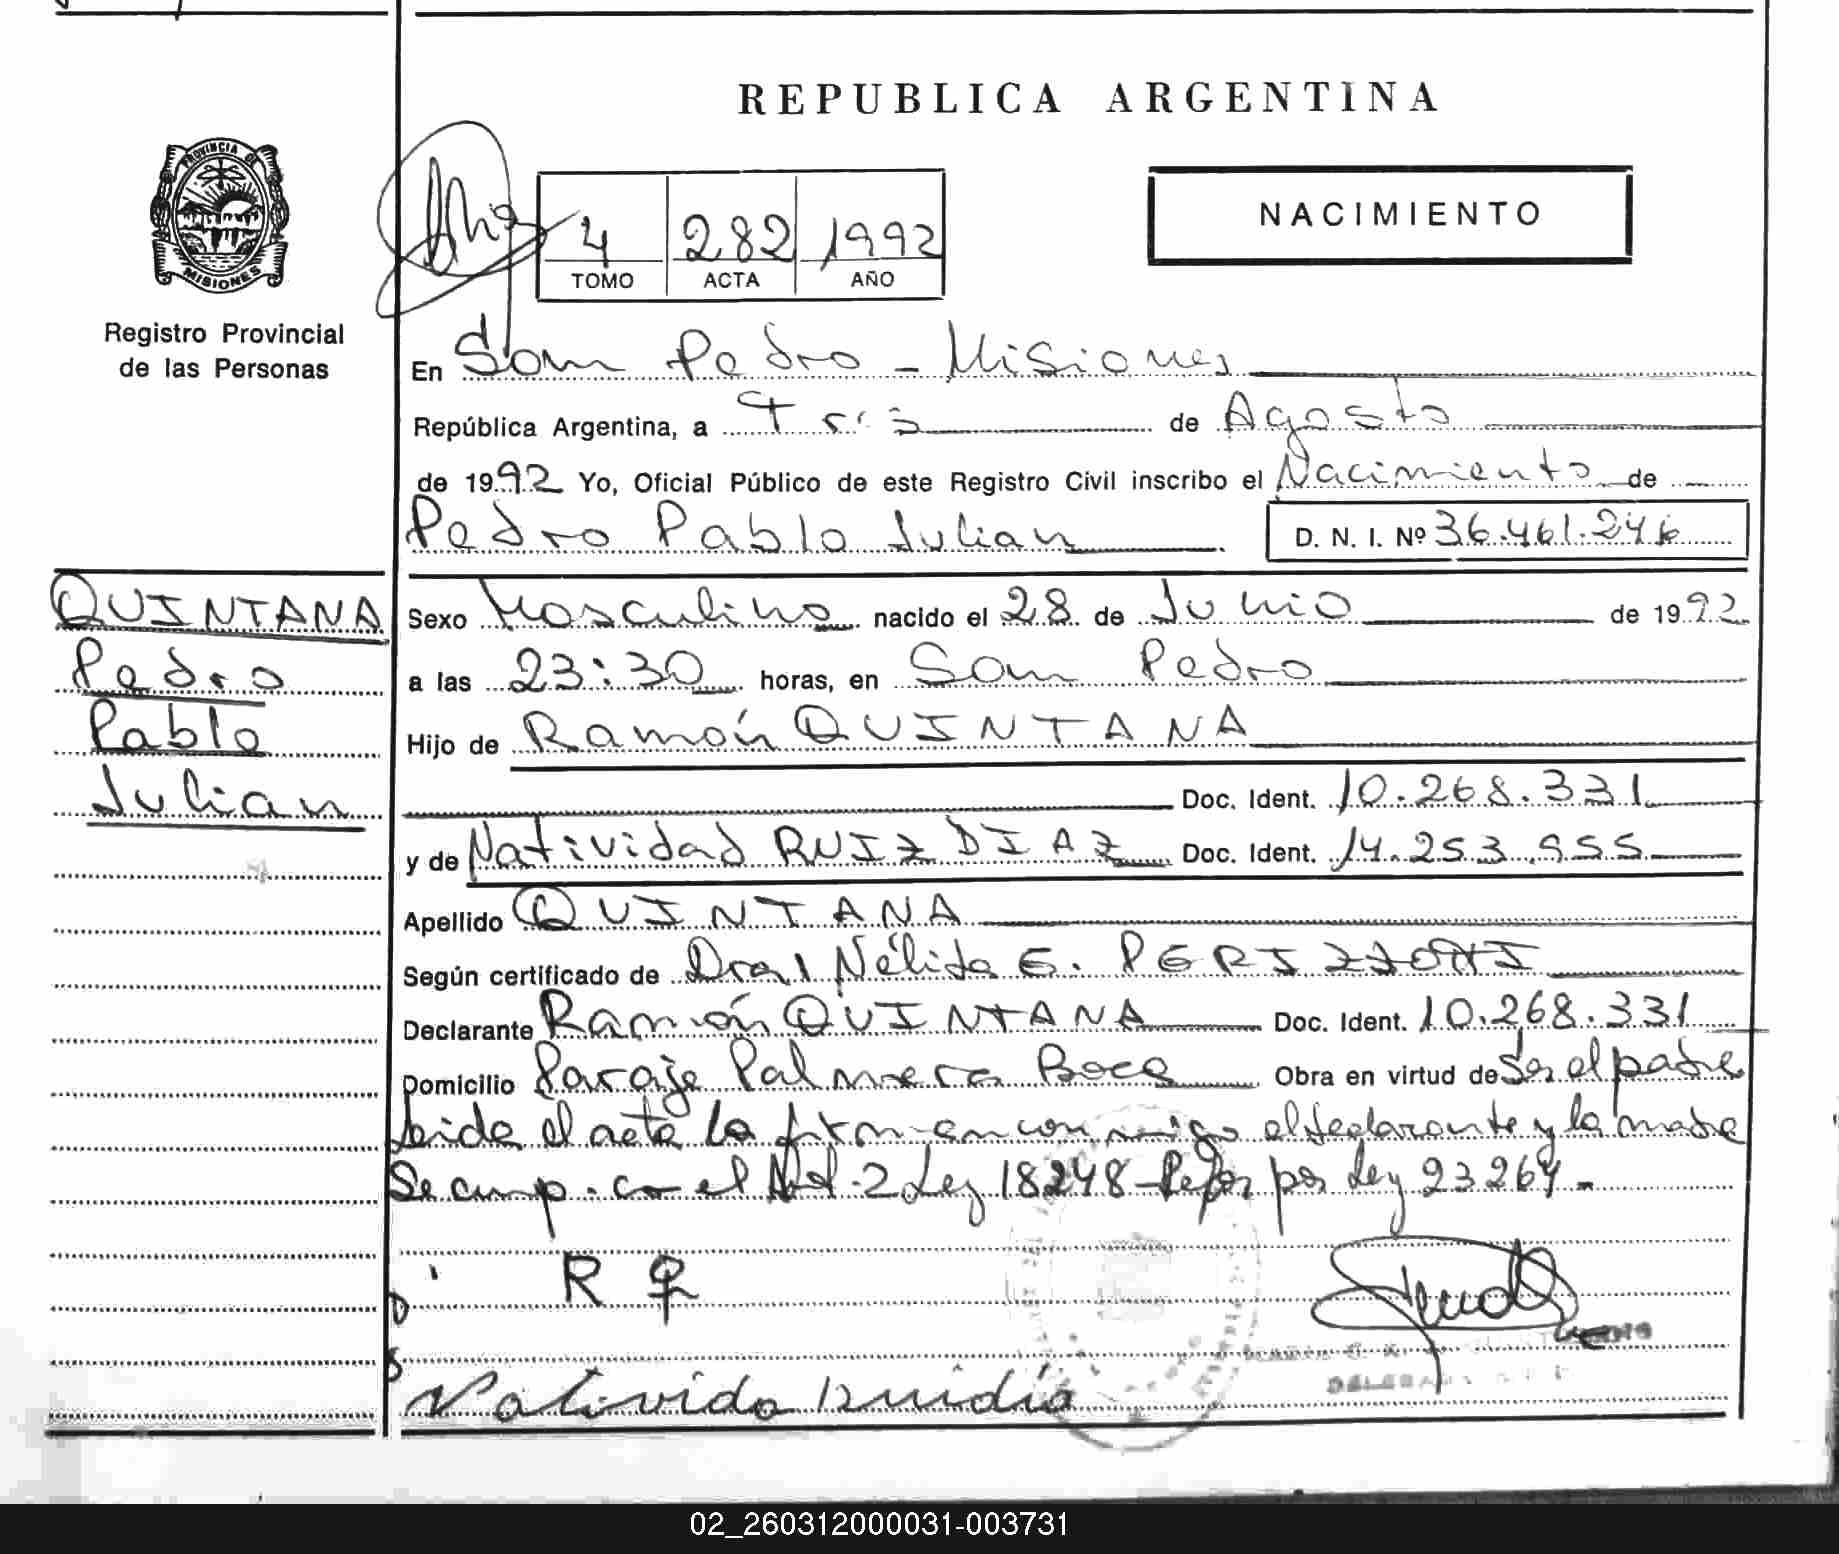 REPUBLICA ARGENTINA
PROVINCIA DE
MISIONES
Registro Provincial
de las Personas
4 282 1992
TOMO ACTA AÑO
NACIMIENTO
En San Pedro - Misiones
República Argentina, a Tres de Agosto
de 1992 Yo, Oficial Público de este Registro Civil inscribo el Nacimiento de
Pedro Pablo Julian D. N. I. Nº 36.461.246
QUINTANA
Pedro
Pablo
Julian
Sexo Masculino nacido el 28 de Junio de 1992
a las 23:30 horas, en San Pedro
Hijo de Ramón QUINTANA
Doc. Ident. 10.268.331
y de Natividad RUIZ DIAZ Doc. Ident. 14.253.955
Apellido QUINTANA
Según certificado de Dra. Nélida E.
Declarante Ramón QUINTANA Doc. Ident. 10.268.331
Domicilio Paraje Palmera Boca Obra en virtud de Ser el padre
Leida el acta la firman conmigo el declarante y la madre
Se cump. con el Art. 2 Ley 18248 - Refor por Ley 23264 -
R Q
02_260312000031-003731